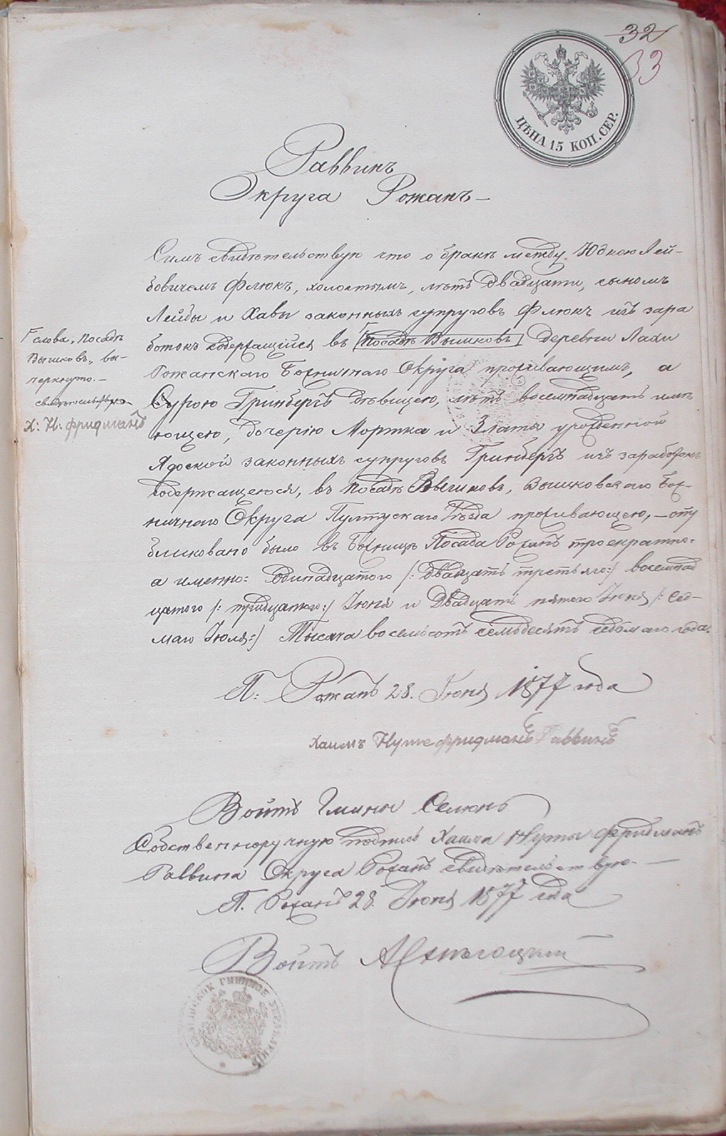 32
33
ЦѢНА 15 КОП. СЕР.
Раввинъ
Округа Рожанъ
Симъ свидѣтельствую что о бракѣ между Юдкою Лей-
бовичемъ Флюкъ, холостымъ, лѣтъ двадцати, сыномъ
Лейбы и Хавы законныхъ супруговъ Флюкъ изъ зара
ботокъ содержащійся въ Посадѣ Вышковъ, деревни
Рожанскаго Божничнаго Округа проживающимъ, а
Сурою Гринбергъ дѣвицею, лѣтъ восемнадцать им-
ѣющею, дочерію Мортка и Златы урожденной
законныхъ супруговъ Гринбергъ изъ заработокъ
содержащеюся, въ Посадѣ Вышковъ, Вышковскаго Бож-
ничнаго Округа Пултускаго Уѣзда проживающею, — опу
бликовано было въ Божницѣ Посада Рожанъ троекратно.
а именно: Одинадцатаго /: двадцать третьяго:/ восемнад
цатаго /: тридцатаго:/ Іюня и Двадцать пятаго Іюня /: сед-
маго Іюля:/ Тысяча восемьсотъ семьдесятъ седьмаго года.
Слова, Посадъ
Вышковъ, вы-
черкнуто.—
Х: Н. Фридманъ
П. Рожанъ 28. Іюня 1877 года
Хаимъ Нута Фридманъ Раввинъ
Войтъ Гмины
Собственноручную подпись Хаима Нуты Фридманъ
Раввина Округа Рожанъ свидѣтельствую.—
П. Рожанъ 28. Іюня 1877 года
Войтъ